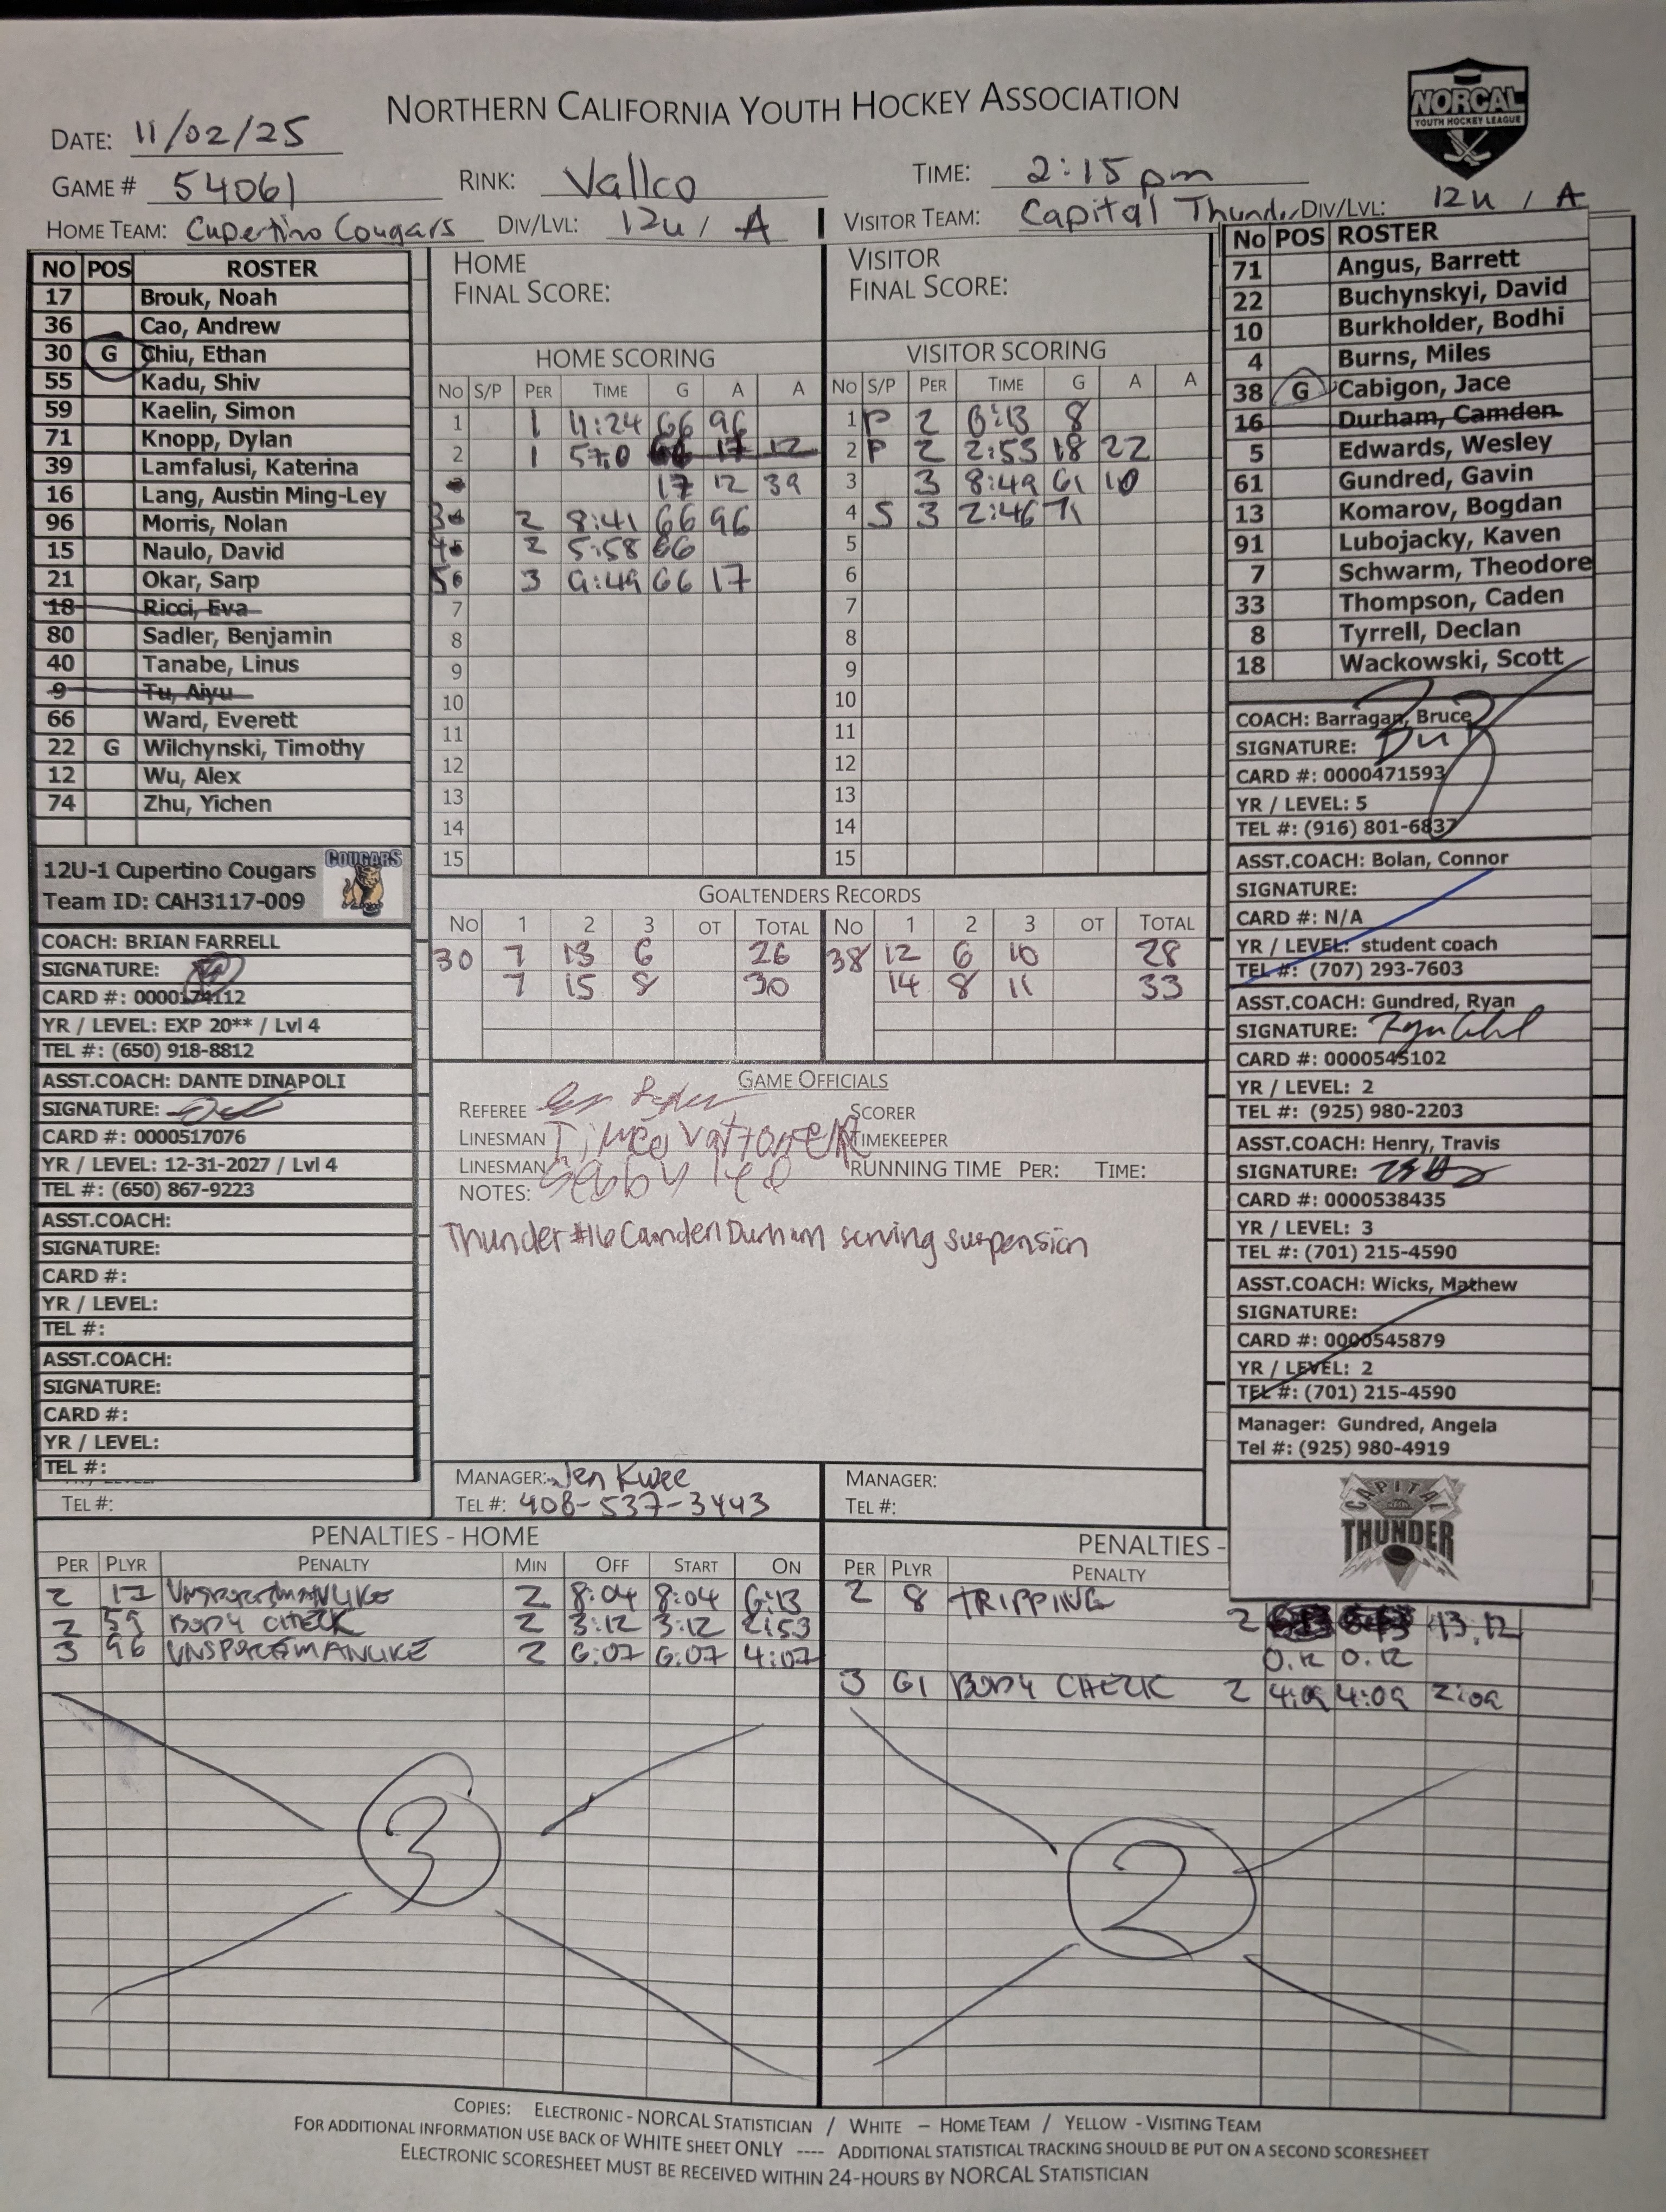 NORTHERN CALIFORNIA YOUTH HOCKEY ASSOCIATION
NORCAL
YOUTH HOCKEY LEAGUE
DATE: 11/02/25
GAME # 54061 RINK: Vallco TIME: 2:15 pm
HOME TEAM: Cupertino Cougars DIV/LVL: 12u / A VISITOR TEAM: Capital Thunder DIV/LVL: 12u / A
NO POS ROSTER
17 Brouk, Noah
36 Cao, Andrew
30 G Chiu, Ethan
55 Kadu, Shiv
59 Kaelin, Simon
71 Knopp, Dylan
39 Lamfalusi, Katerina
16 Lang, Austin Ming-Ley
96 Morris, Nolan
15 Naulo, David
21 Okar, Sarp
18 Ricci, Eva
80 Sadler, Benjamin
40 Tanabe, Linus
9 Tu, Aiyu
66 Ward, Everett
22 G Wilchynski, Timothy
12 Wu, Alex
74 Zhu, Yichen
12U-1 Cupertino Cougars
Team ID: CAH3117-009
COUGARS
COACH: BRIAN FARRELL
SIGNATURE:
CARD #: 0000174112
YR / LEVEL: EXP 20** / Lvl 4
TEL #: (650) 918-8812
ASST.COACH: DANTE DINAPOLI
SIGNATURE:
CARD #: 0000517076
YR / LEVEL: 12-31-2027 / Lvl 4
TEL #: (650) 867-9223
ASST.COACH:
SIGNATURE:
CARD #:
YR / LEVEL:
TEL #:
ASST.COACH:
SIGNATURE:
CARD #:
YR / LEVEL:
TEL #:
TEL #:
HOME
FINAL SCORE:
VISITOR
FINAL SCORE:
HOME SCORING
NO S/P PER TIME G A A
1 1 11:24 66 96
2 1 57.0 17 12
17 12 39
3 2 8:41 66 96
4 2 5:58 66
5 3 9:49 66 17
7
8
9
10
11
12
13
14
15
VISITOR SCORING
NO S/P PER TIME G A A
1 P 2 6:13 8
2 P 2 2:53 18 22
3 3 8:49 61 10
4 S 3 2:46 71
5
6
7
8
9
10
11
12
13
14
15
GOALTENDERS RECORDS
NO 1 2 3 OT TOTAL NO 1 2 3 OT TOTAL
30 7 13 6 26 38 12 6 10 28
7 15 8 30 14 8 11 33
GAME OFFICIALS
REFEREE SCORER
LINESMAN TIMEKEEPER
LINESMAN RUNNING TIME PER: TIME:
NOTES:
Thunder #16 Camden Durham serving suspension
MANAGER: Jen Kwee
TEL #: 408-537-3443
MANAGER:
TEL #:
NO POS ROSTER
71 Angus, Barrett
22 Buchynskyi, David
10 Burkholder, Bodhi
4 Burns, Miles
38 G Cabigon, Jace
16 Durham, Camden
5 Edwards, Wesley
61 Gundred, Gavin
13 Komarov, Bogdan
91 Lubojacky, Kaven
7 Schwarm, Theodore
33 Thompson, Caden
8 Tyrrell, Declan
18 Wackowski, Scott
COACH: Barragan, Bruce
SIGNATURE:
CARD #: 0000471593
YR / LEVEL: 5
TEL #: (916) 801-6837
ASST.COACH: Bolan, Connor
SIGNATURE:
CARD #: N/A
YR / LEVEL: student coach
TEL #: (707) 293-7603
ASST.COACH: Gundred, Ryan
SIGNATURE:
CARD #: 0000545102
YR / LEVEL: 2
TEL #: (925) 980-2203
ASST.COACH: Henry, Travis
SIGNATURE:
CARD #: 0000538435
YR / LEVEL: 3
TEL #: (701) 215-4590
ASST.COACH: Wicks, Mathew
SIGNATURE:
CARD #: 0000545879
YR / LEVEL: 2
TEL #: (701) 215-4590
Manager: Gundred, Angela
Tel #: (925) 980-4919
CAPITAL
THUNDER
PENALTIES - HOME
PER PLYR PENALTY MIN OFF START ON
2 17 UNSPORTSMANLIKE 2 8:04 8:04 6:13
2 59 BODY CHECK 2 3:12 3:12 2:53
3 96 UNSPORTSMANLIKE 2 6:07 6:07 4:07
3
PENALTIES -
PER PLYR PENALTY
2 8 TRIPPING 2 13.12
0.12 0.12
3 61 BODY CHECK 2 4:09 4:09 2:09
2
COPIES: ELECTRONIC - NORCAL STATISTICIAN / WHITE – HOME TEAM / YELLOW - VISITING TEAM
FOR ADDITIONAL INFORMATION USE BACK OF WHITE SHEET ONLY ---- ADDITIONAL STATISTICAL TRACKING SHOULD BE PUT ON A SECOND SCORESHEET
ELECTRONIC SCORESHEET MUST BE RECEIVED WITHIN 24-HOURS BY NORCAL STATISTICIAN